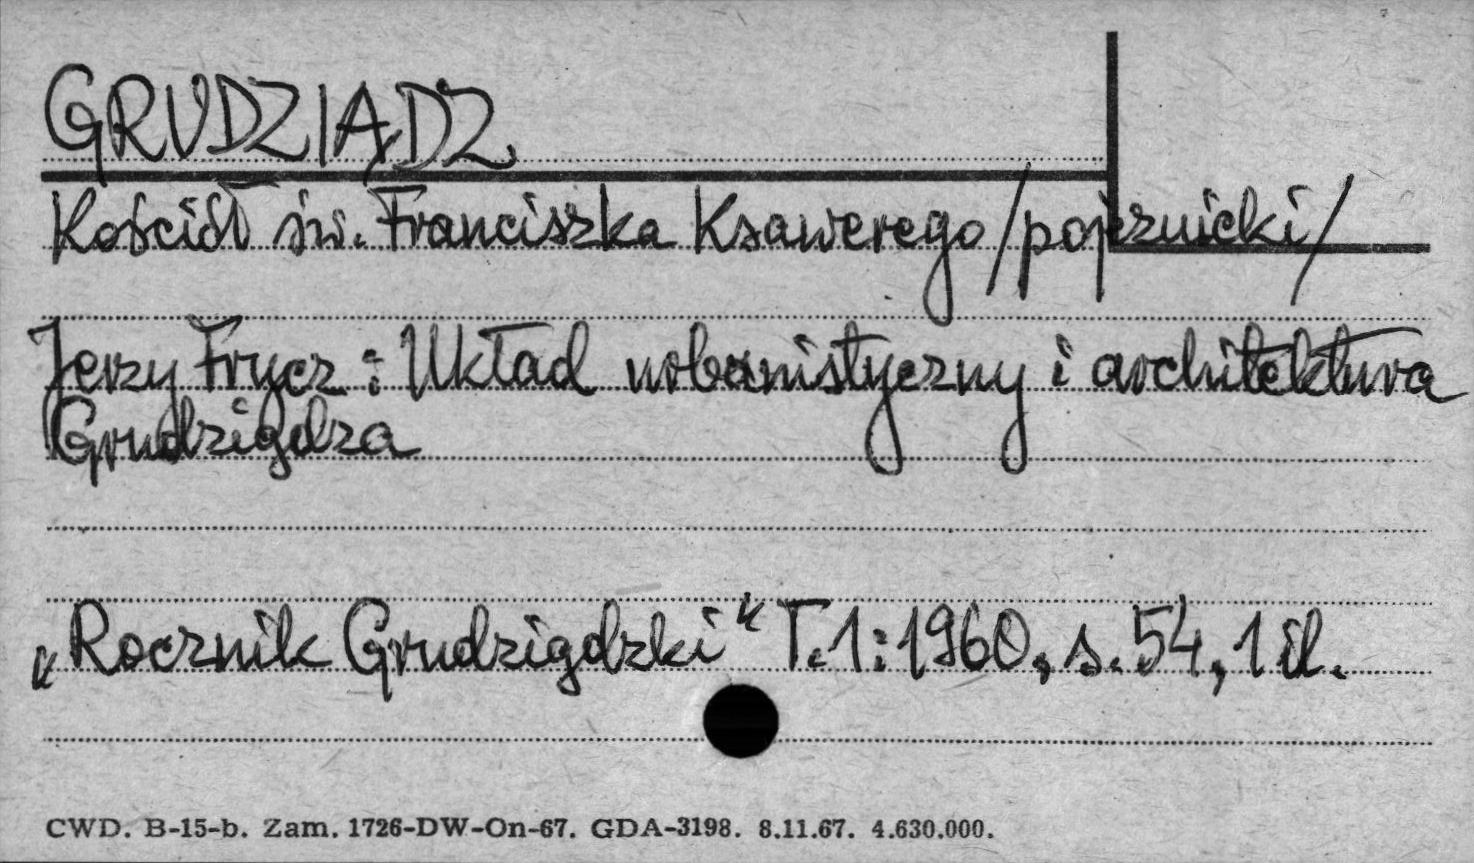 GRUDZIĄDZ
Kościół św. Franciszka Ksawerego /pojeznicki/
Jerzy Frycz : Układ urbanistyczny i architektura
Grudziądza
„Rocznik Grudziądzki" T.1:1960, s. 54, 1 il.
CWD. B-15-b. Zam. 1726-DW-On-67. GDA-3198. 8.11.67. 4.630.000.